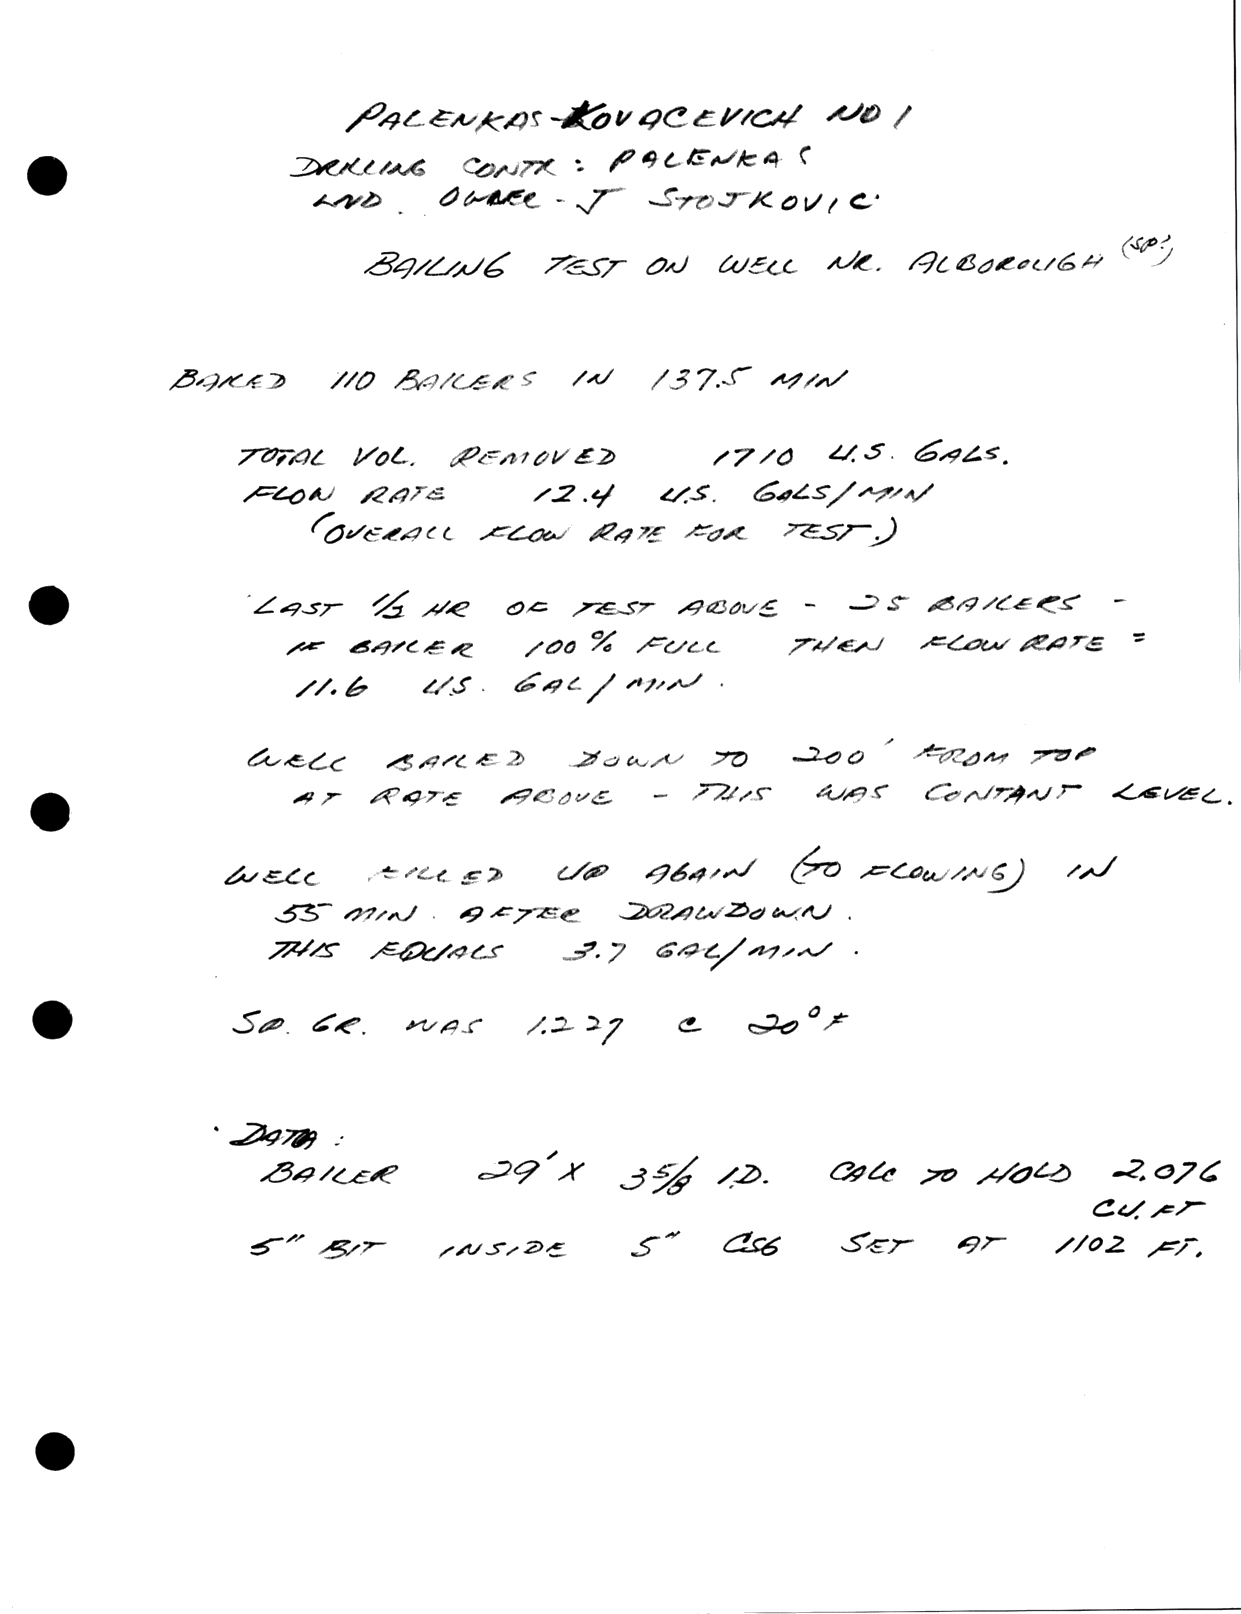 PALENKAS-KOVACEVICH NO 1
DRILLING CONTR: PALENKAS
LND. OWNER - J STOJKOVIC.
BAILING TEST ON WELL NR. ALBOROUGH (SP?)
BAILED 110 BAILERS IN 137.5 MIN
TOTAL VOL. REMOVED 1710 U.S. GALS.
FLOW RATE 12.4 U.S. GALS/MIN
(OVERALL FLOW RATE FOR TEST.)
LAST 1/2 HR OF TEST ABOVE - 25 BAILERS -
IF BAILER 100% FULL THEN FLOW RATE =
11.6 U.S. GAL/MIN.
WELL BAILED DOWN TO 200' FROM TOP
AT RATE ABOVE - THIS WAS CONTANT LEVEL.
WELL FILLED UP AGAIN (TO FLOWING) IN
55 MIN. AFTER DRAWDOWN.
THIS EQUALS 3.7 GAL/MIN.
SP. GR. WAS 1.227 @ 20°F
DATA:
BAILER 29' X 3 5/8 I.D. CALC TO HOLD 2.076
CU. FT
5" BIT INSIDE 5" CSG SET AT 1102 FT.